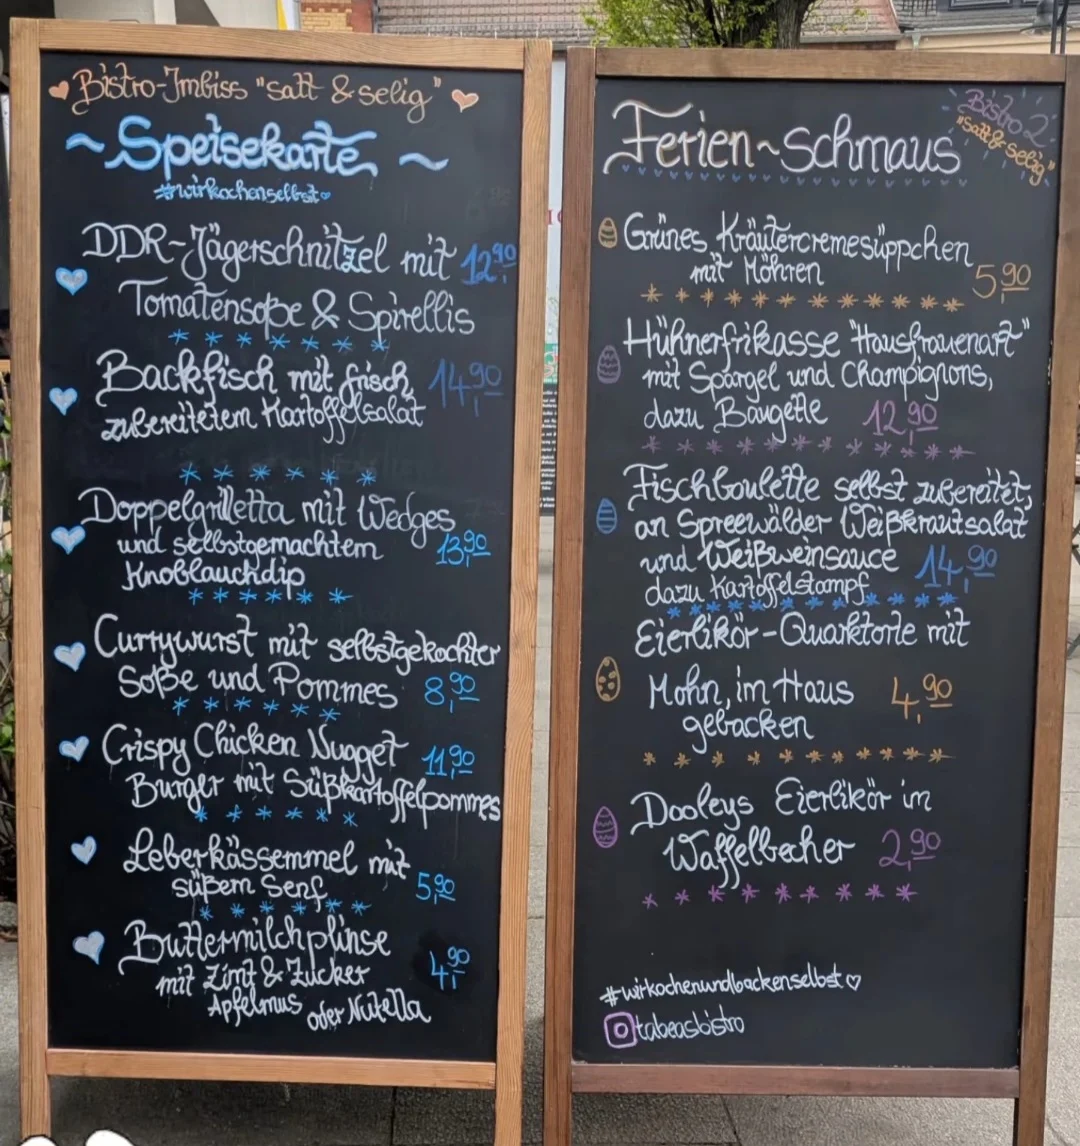 Bistro-Imbiss "satt & selig"
~Speisekarte~
#wirkochenselbst
DDR-Jägerschnitzel mit 12,90
Tomatensoße & Spirellis
Backfisch mit frisch 14,90
zubereitetem Kartoffelsalat
Doppelgrilletta mit Wedges
und selbstgemachtem 13,90
Knoblauchdip
Currywurst mit selbstgekochter
Soße und Pommes 8,90
Crispy Chicken Nugget 11,90
Burger mit Süßkartoffelpommes
Leberkässemmel mit
süßem Senf 5,90
Buttermilchplinse
mit Zimt & Zucker 4,90
Apfelmus oder Nutella
Ferien~schmaus
Bistro 2
"satt & selig"
Grünes Kräutercremesüppchen
mit Möhren 5,90
Hühnerfrikasse "Hausfrauenart"
mit Spargel und Champignons,
dazu Baugette 12,90
Fischboulette selbst zubereitet,
an Spreewälder Weißkrautsalat
und Weißweinsauce 14,90
dazu Kartoffelstampf
Eierlikör-Quarktorte mit
Mohn, im Haus 4,90
gebacken
Dooleys Eierlikör im
Waffelbecher 2,90
#wirkochenundbackenselbst
tabeasbistro